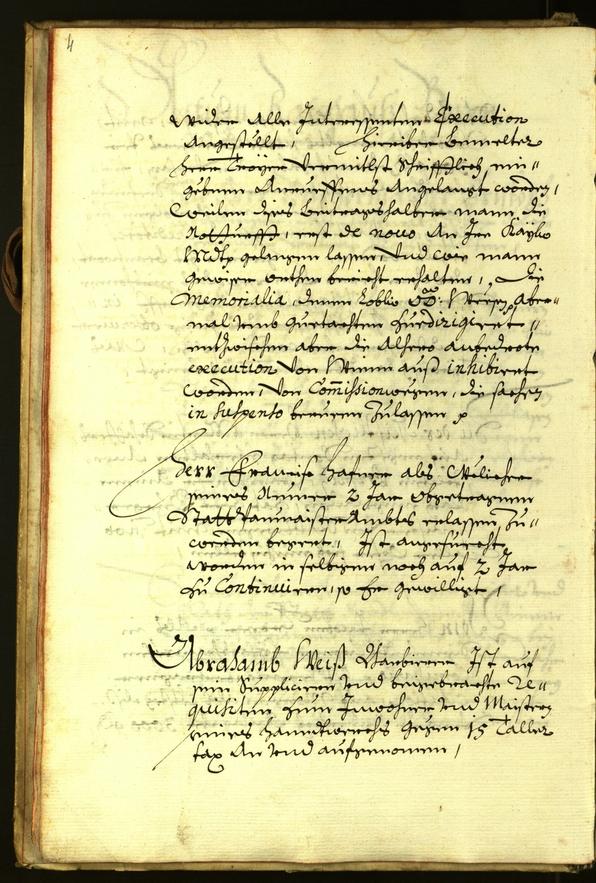 4
wider Alle Interessenten Execution
Angestellt, hierüber bemelter
Herr Troyer vermitlst schrifftlich ein"
Angelangt worden,
weilen dises beitragshalber mann die
Notturfft, erst de novo An Ire Kayß:
Mtt: gelangen lassen, Und wie mann
bericht erhalten, die
Memorialia, denen löblich OÖ: Weesen aber"
mal umb guetachten zuedirigiert"
entzwischen aber die Alhero anbedeite
execution von Wienn auß inhibiert
worden, von Commissionwegen, die sachen
in suspenso beruen zulassen p
Herr Francisc Hafner als Welicher
seines Nunmer 2 Jar Obgetragnem
Stattpaumaister Ambtes erlassen zu"
werden begert, Ist angesuecht
worden in selbigem noch auf 2 Jar
zu Continuieren, so Er gewilligt,
Abrahamb Weiß Barbierer Ist auf
sein Supplicieren und beigebrachte Re"
quisiten zum Inwohner und Maister
seines Handtwerchs gegen 15 Taller
tax An und aufgenomen,